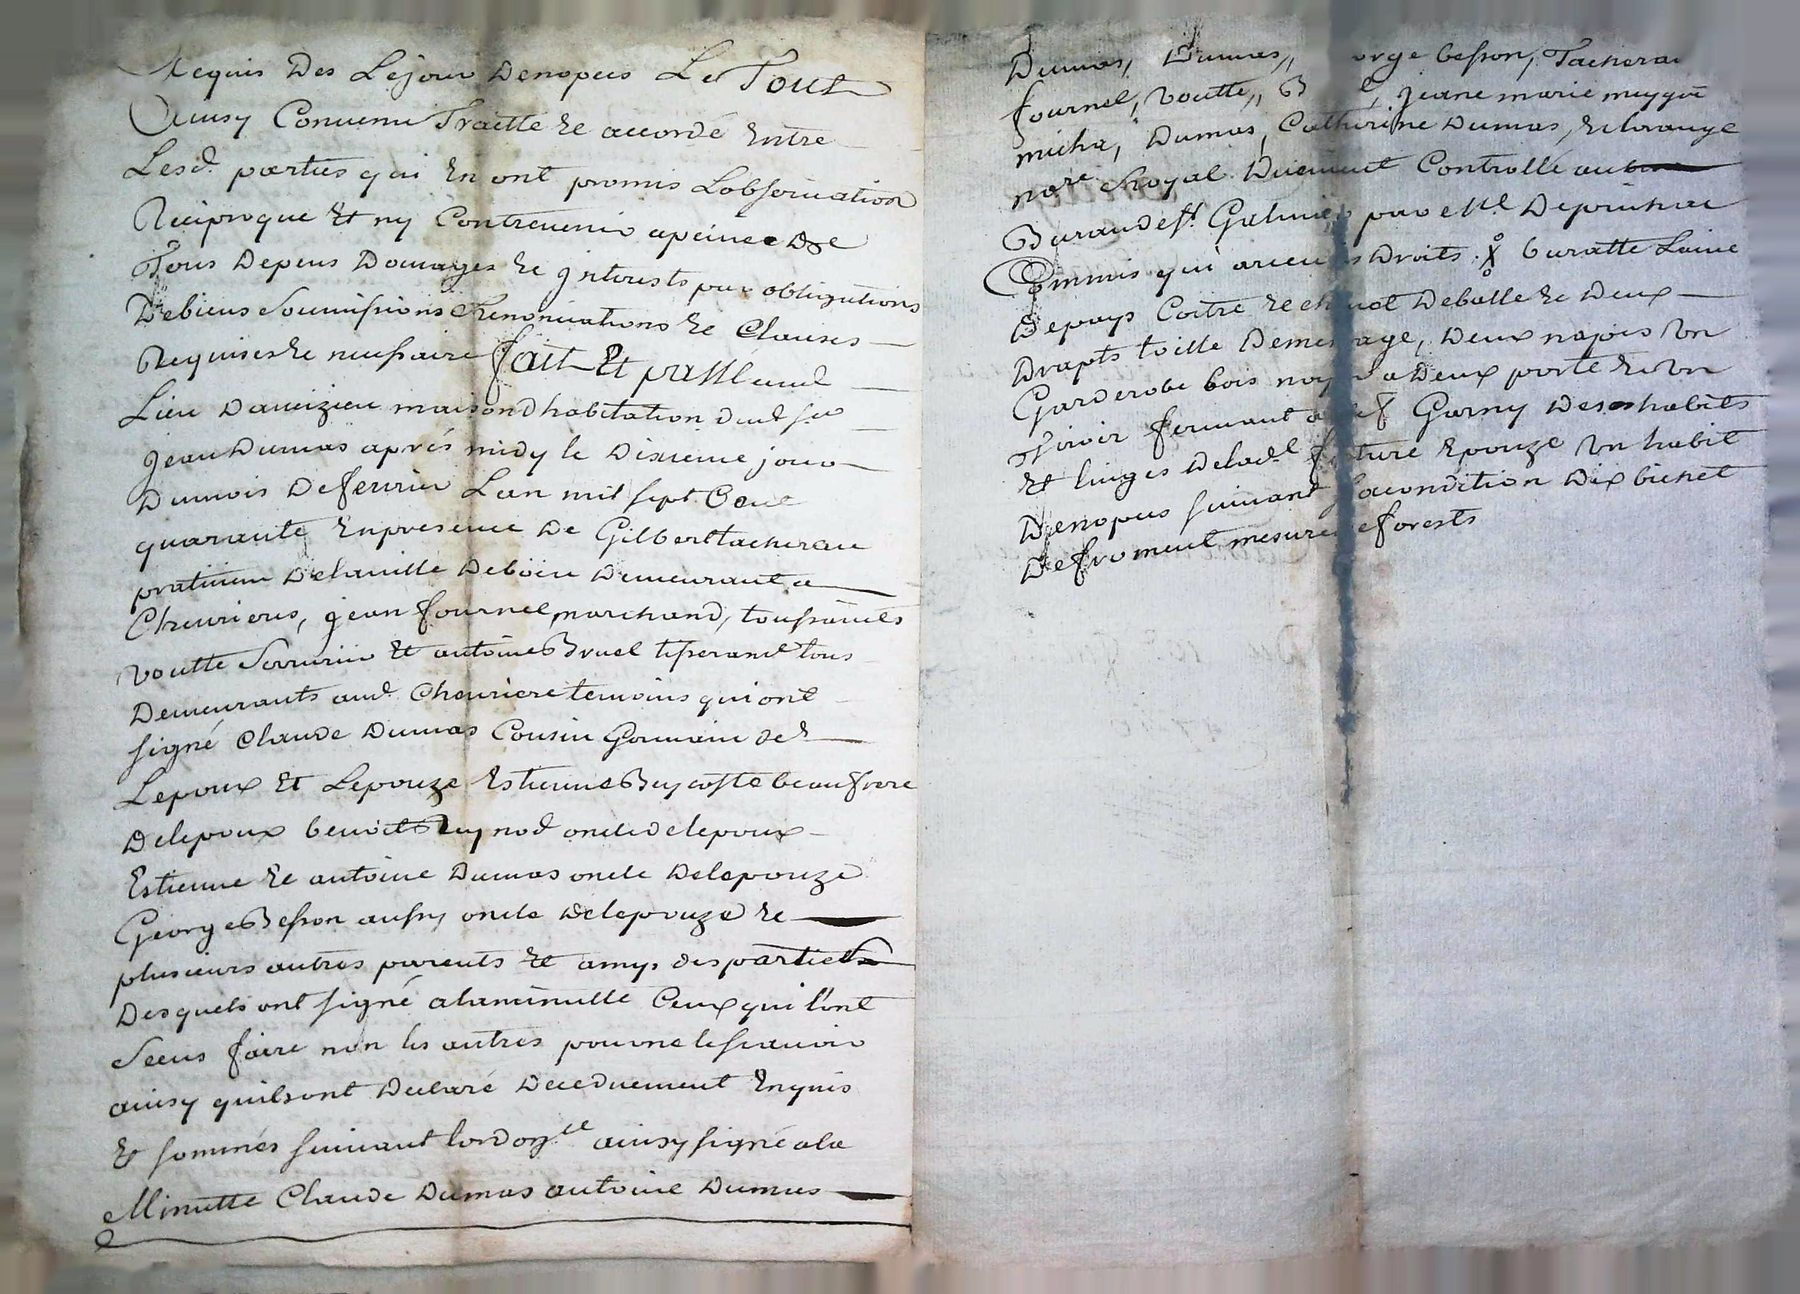 Requis Des Lejour Denopces Le Tout
Ainsy Convenu Traitté Et accordé Entre
Lesd. parties qui En ont promis Lobservation
Reciproque Et ny Contrevenir apeine De
Tous Depens Domages Et jnterests par obligations
Debiens Soumissions Renonciations Et Clauses
Requises Et necessaire fait Et passé aud
Lieu Daveizieu maison dhabitation dud sr
jean Dumas aprés midy le Dixieme jour
Dumois Defevrier Lan mil sept Cent
quarante Enpresence De Gilbert tacherau
praticien Delaville Deboën Demeurant a
Chevrieres, jean fournel marchand, toussaints
voutte Serrurier Et antoine Bruel tisserand tous
Demeurants aud. Chevriere temoins qui ont
signé Claude Dumas Cousin Germain de
Lepoux Et Lepouze Estienne Buycoste beaufrere
Delepoux benoit Reynod oncle delepoux
Estienne Et antoine Dumas oncle Delepouze
George Besson aussy oncle Delepouze Et
plusieurs autres parents Et amys des parties
Desquels ont signé alaminutte Ceux qui l'ont
Sceus faire non les autres pour ne le scavoir
ainsy quils ont Declaré Deceduement Enquis
Et sommés suivant lordon.ce ainsy signé ala
Minutte Claude Dumas antoine Dumas
Dumas, Dumas,, besson, Tacherau
fournel, voutte,, jeane marie
micha, Dumas, Catherine Dumas, Et
nore Royal Duement Controllé au
Bureau de st Galmier par Depeinhac
Commis qui a receu les Droits. X buratte Laine
Depays Coitre Et chevet Deballe Et Deux
Drapts toille Demenage, Deux napes Un
Garderobe bois noyer a Deux porte Et Un
tiroir fermant a clef Garny Des habits
Et linges Delade. future Epouze Un habit
Denopces suivant sacondition Dix bichet
Defroment mesure deforests